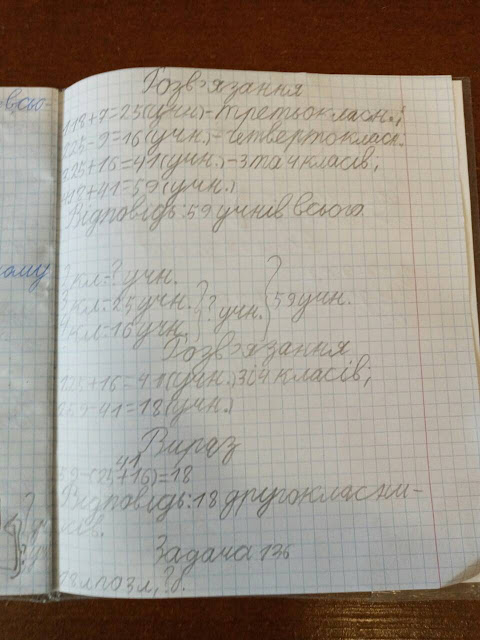 всьо-
Розв'язання
1)18+7=25(учн.)-третьокласн.;
2)25-9=16(учн.)-четвертокласн.
3)25+16=41(учн.)-3 та 4 класів;
4)18+41=59(учн.)
Відповідь: 59 учнів всього.
ому
2 кл-? учн.
3 кл-25 учн. ? учн. 59 учн.
4 кл-16 учн.
Розв'язання
1)25+16=41(учн.) 3 і 4 класів;
2)59-41=18(учн.)
Вираз
41
59-(25+16)=18
Відповідь: 18 другокласни-
ків.
Задача 136